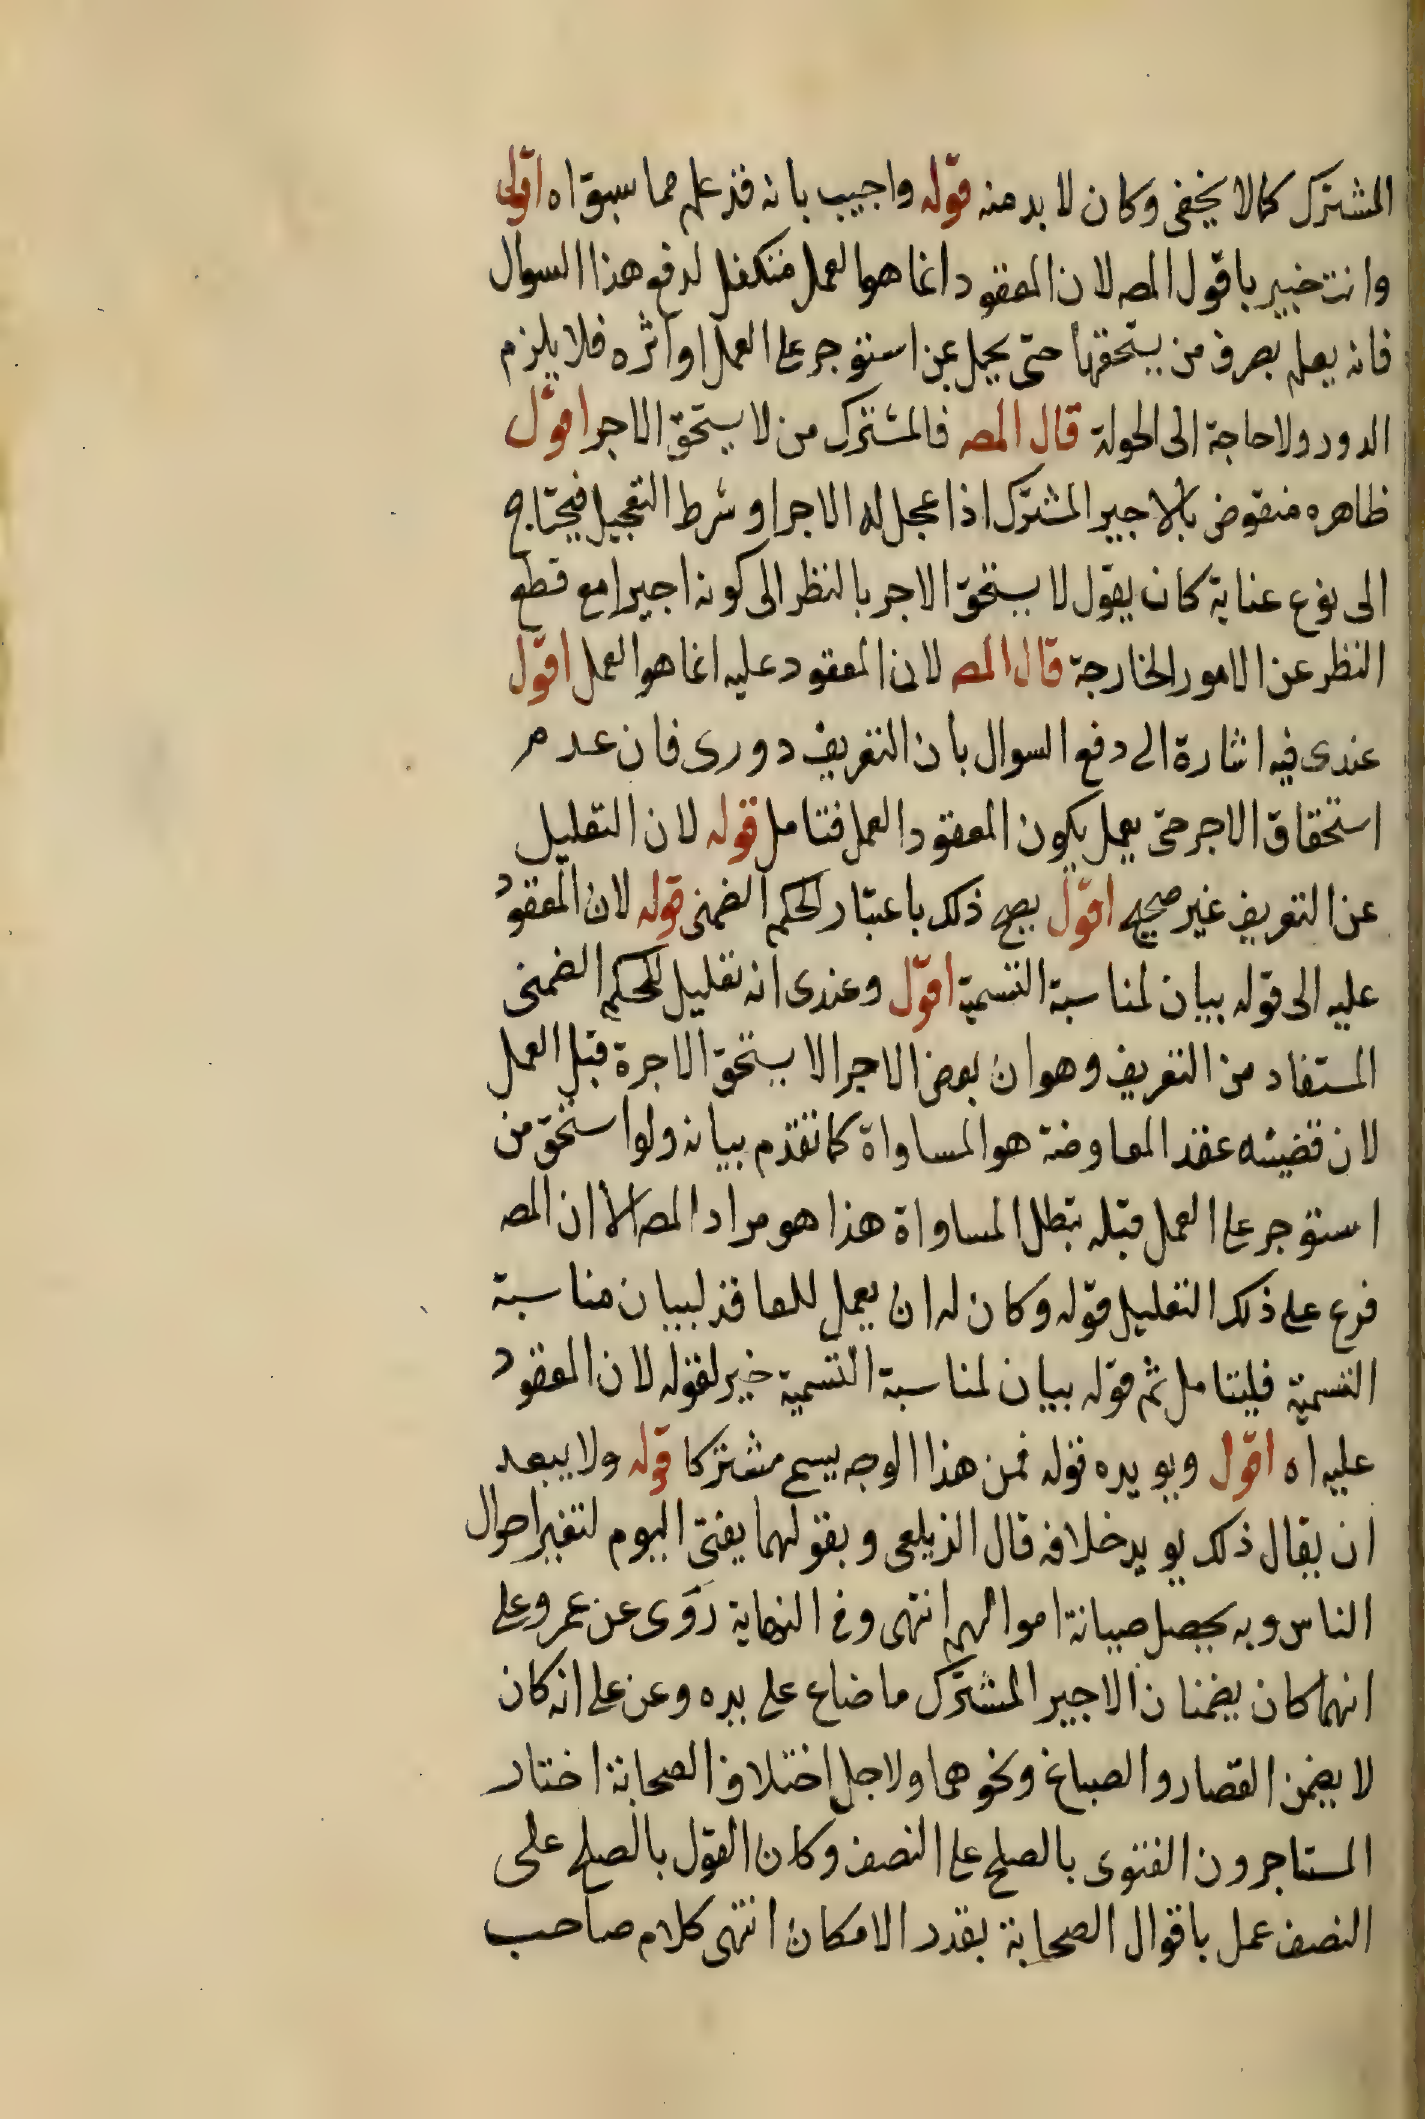 المشترك كما لا يخفى وكان لا بد منه قوله واجيب بانه قد علم مما سبق اه اقول
وانت خبير بان قول المص لان المعقود انما هو العمل متكفل لدفع هذا السوال
فانه يعلم بصرف من يستحقها حتى يحمل عن استوجر على العمل او اثره فلا يلزم
الدور ولا حاجة الى الحولة قال المص فالمشترك من لا يستحق الاجر اقول
ظاهره منقوض بالاجير المشترك اذا عجل له الاجر او شرط التعجيل فيحتاج
الى نوع عناية كان يقول لا يستحق الاجر بالنظر الى كونه اجيرا مع قطع
النظر عن الامور الخارجة قال المص لان المعقود عليه انما هو العمل اقول
عندى فيه اشارة الى دفع السوال بان التعريف دورى فان عدم
استحقاق الاجر حتى يعمل يكون المعقود العمل فتامل قوله لان التعليل
عن التعريف غير صحيح اقول يصح ذلك باعتبار الحكم الضمنى قوله لان المعقود
عليه الى قوله بيان لمناسبة التسمية اقول وعندى انه تعليل للحكم الضمنى
المستفاد من التعريف وهو ان بعض الاجرا لا يستحق الاجرة قبل العمل
لان قضيته عقد المعاوضة هو المساواة كما تقدم بيانه ولو استحق من
استوجر على العمل قبله بتطل المساواة هذا هو مراد المص الا ان المص
فرع على ذلك التعليل قوله وكان له ان يعمل للعاقد لبيان مناسبة
التسمية فليتامل ثم قوله بيان لمناسبة التسمية خبر لقوله لان المعقود
عليه اه اقول ويويده قوله فمن هذا الوجه يسمى مشتركا قوله ولا يبعد
ان يقال ذلك يويد خلافه قال الزيلعى وبقولهما يفتى اليوم لتغير احوال
الناس وبه يحصل صيانة اموالهم انتهى وفى النهاية روى عن عمر وعلى
انهما كان يضمنان الاجير المشترك ما ضاع على يده وعن على انه كان
لا يضمن القصار والصباغ ونحوهما ولاجل اختلاف الصحابة اختار
المتاجرون الفتوى بالصلح على النصف وكان القول بالصلح على
النصف عمل باقوال الصحابة بقدر الامكان انتهى كلام صاحب